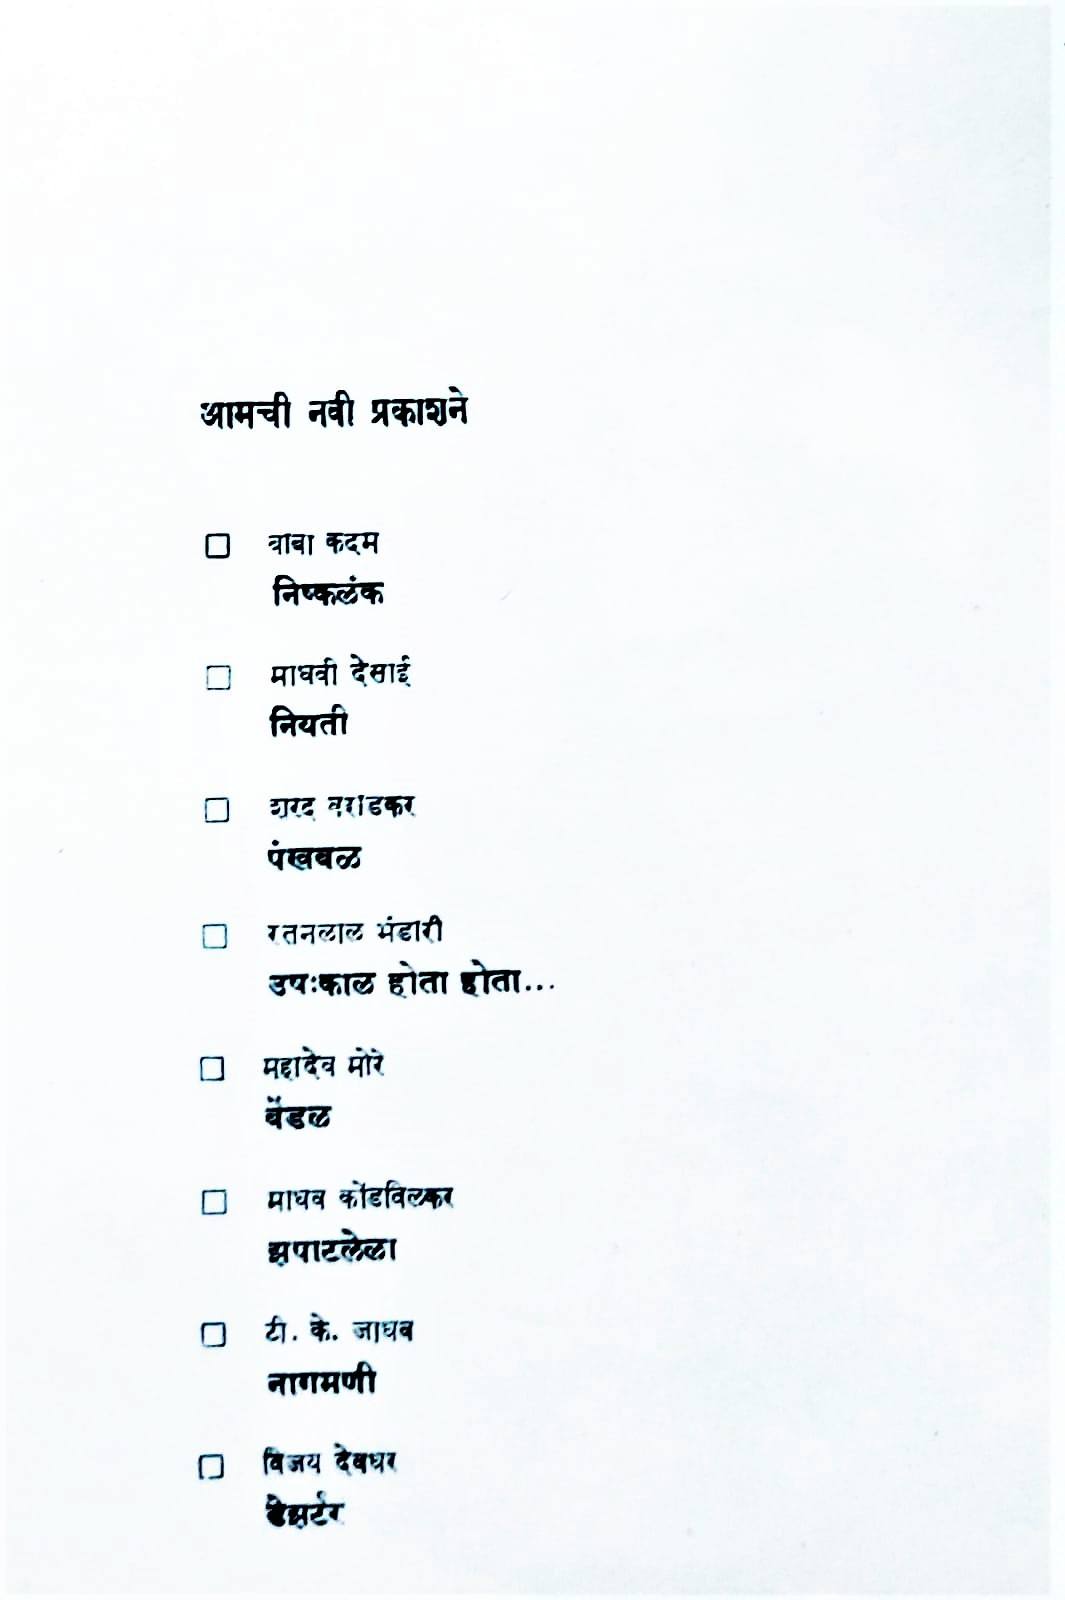 आमची नवी प्रकाशने
बाबा कदम
निष्कलंक
माधवी देसाई
नियती
शरद वरांडकर
पंखबळ
रतनलाल भंडारी
उषःकाल होता होता...
महादेव मोरे
बेंडल
माधव कोंडविलकर
झपाटलेला
टी. के. जाधव
नागमणी
विजय देवधर
डेझर्टर